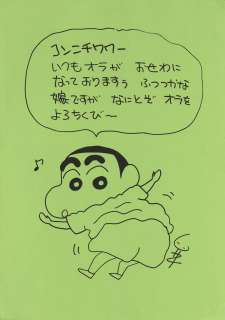 コンニチワワー
いつもオラが おせわに
なっておりますぅ ふつつかな
嫁ですが なにとぞ オラを
よろちくび〜